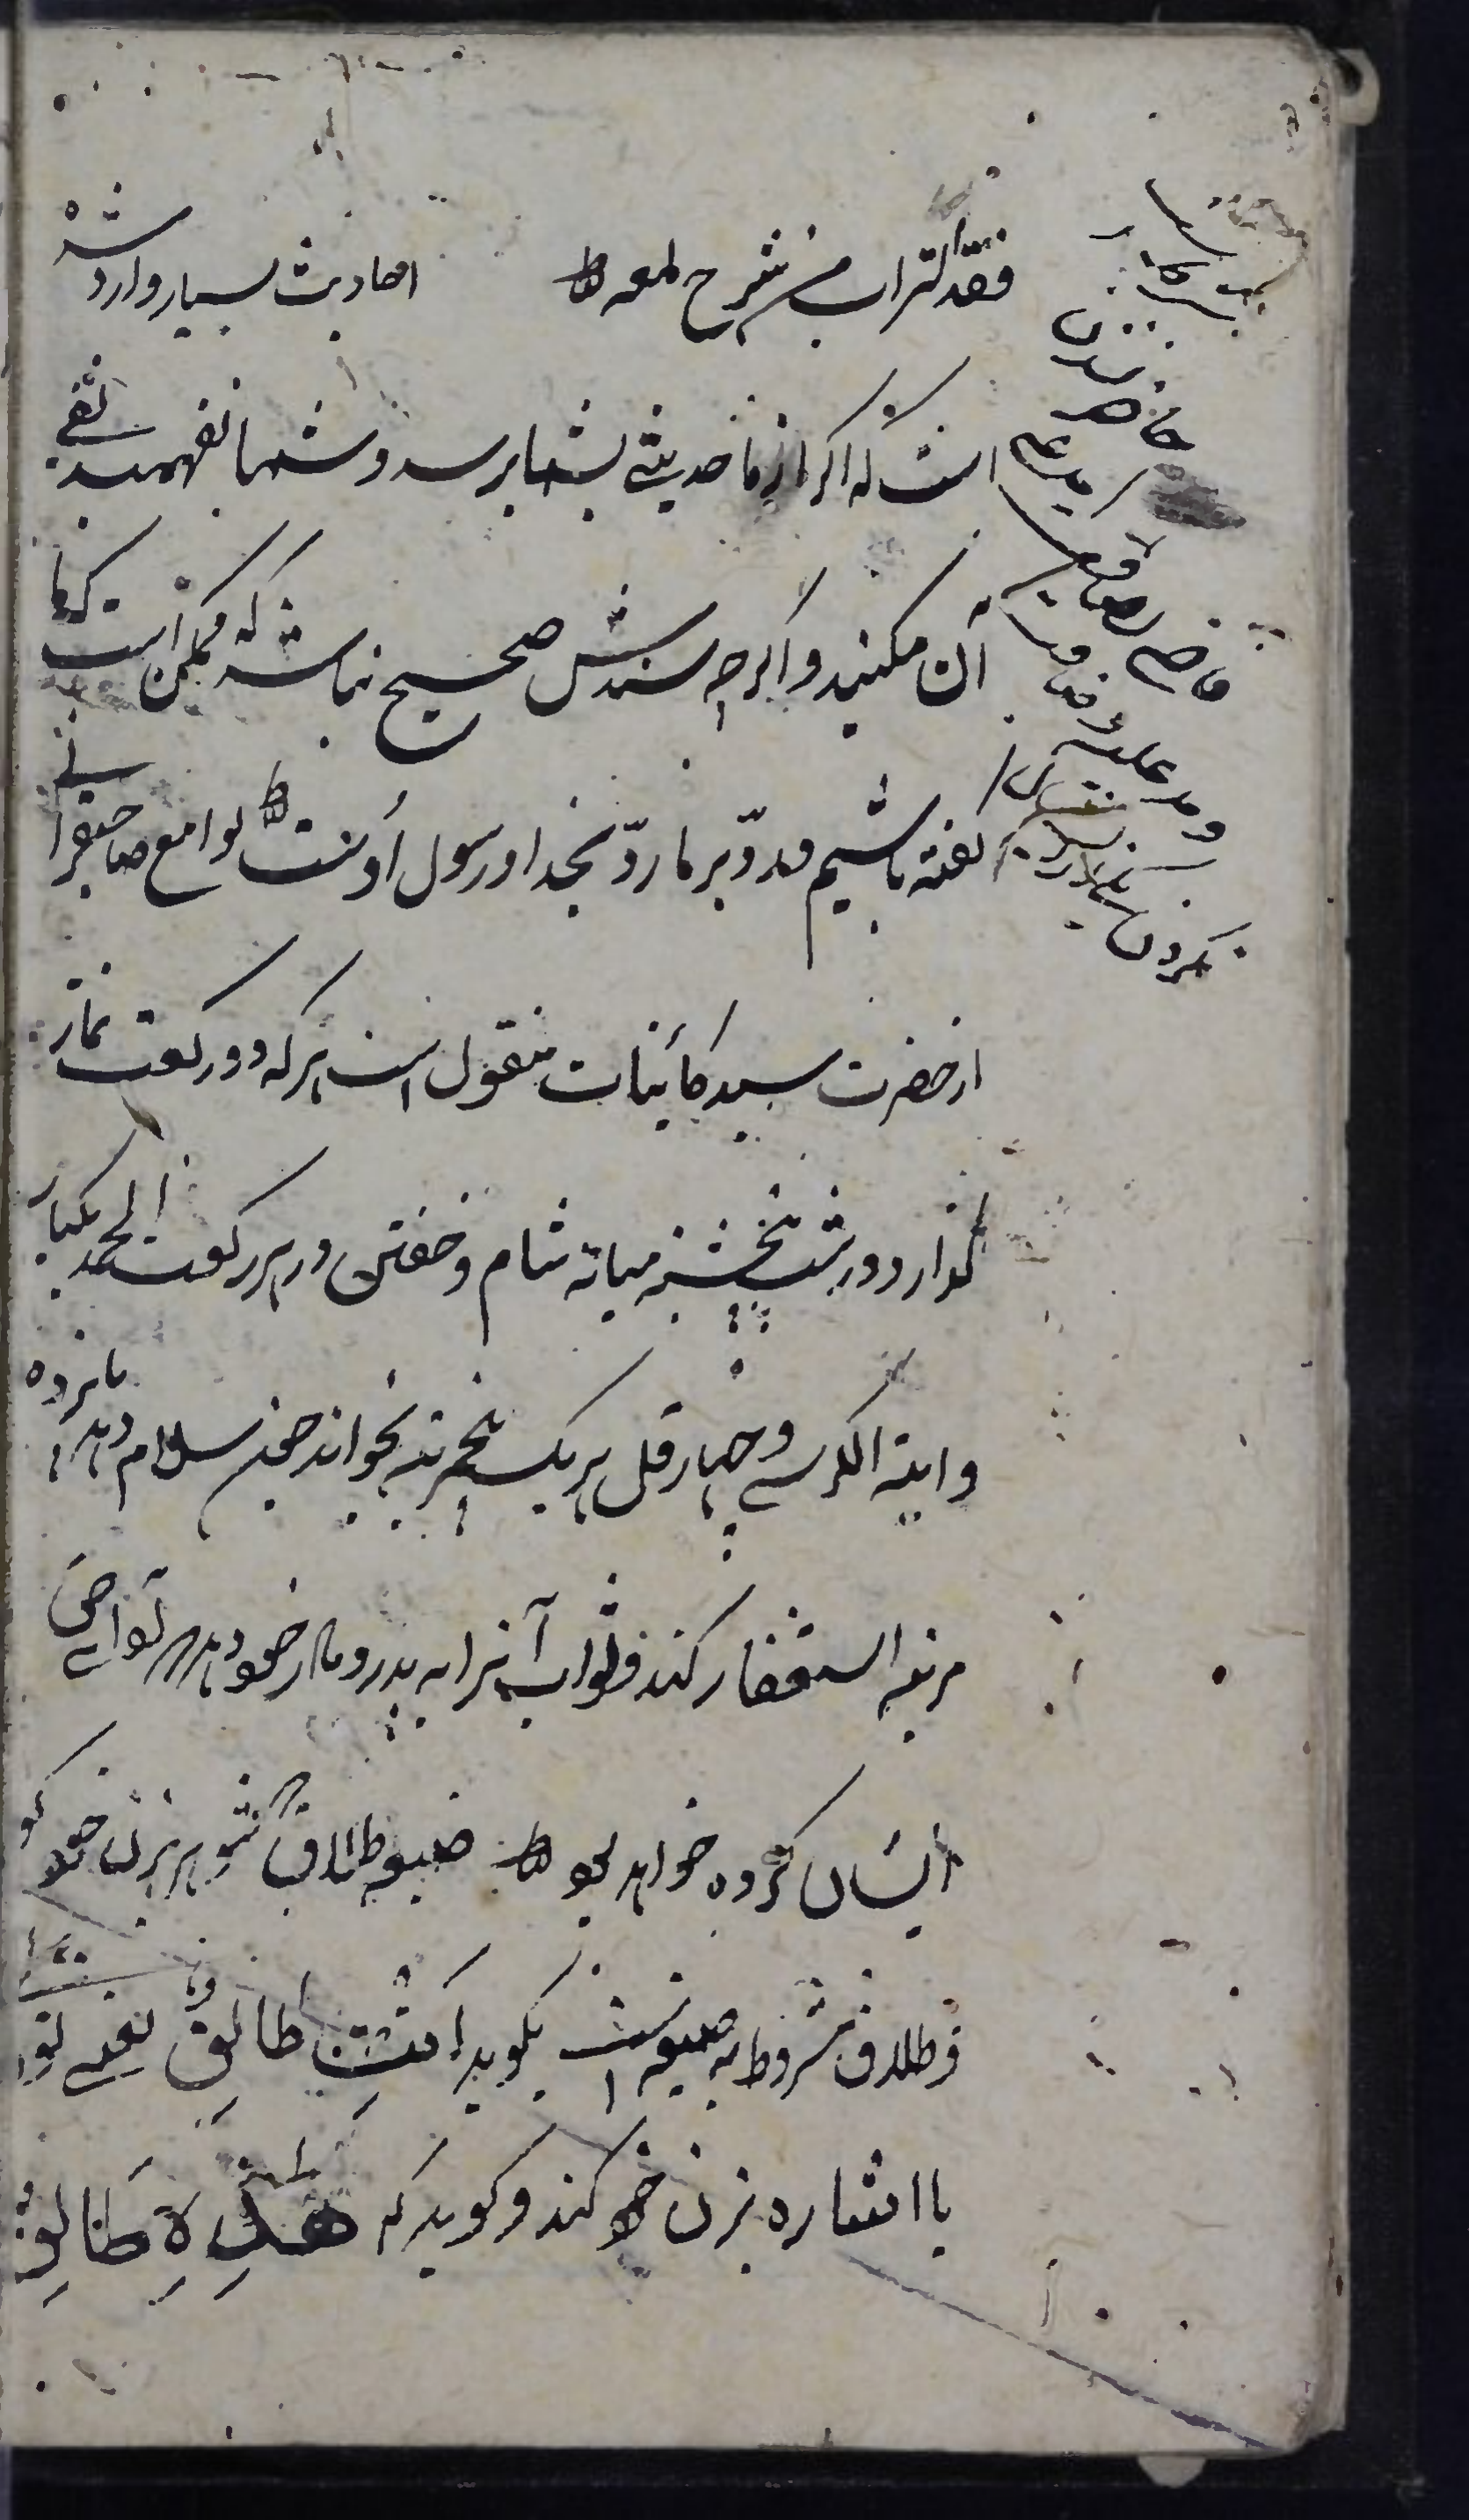 فقد التراب من شرح لمعه احادیث بسیار وارد شده
است که اکر از ما حدیثی بشما برسد و شما نفهمید نفی
آن مکنید و اکرچه سندش صحیح نباشد که ممکن است که ما
کفته باشیم و رد بر ما ردّ بخدا و رسول اوست لوامع صاحبقرانی
از حضرت سید کائنات منقول است هر که دو رکعت نماز
کذارد در شب پنجشنبه میانه شام و خفتن در هر رکعت الحمد یکبار
و ایة الکرسی و چهار قل هر یک پنج مرتبه بخواند چون سلام دهد پانزده
مرتبه استغفار کند و ثواب آنرا به پدر و مادر خود دهد ادای حق
ایشان کرده خواهد بود صیغه طلاق شوهر بزن خود کو
و طلاق مشروط به صیغه است بکوید انتِ طالِقٌ یعنی تو
یا اشاره بزن خود کند و کوید که هذِهِ طَالِقٌ
حاضر شدن
مدعی
قاضی
و مدعی علیه
نکردن